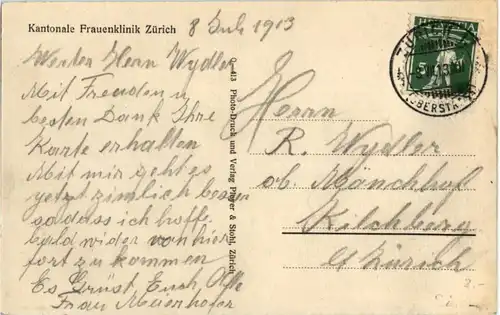 Kantonale Frauenklinik Zürich
8 Juli 1913
Werter Herr Wydler
Mit Freuden u
besten Dank Ihre
Karte erhalten
Mit mir geht es
yetzt zimlich besser
sodass ich hoffe
bald wider von hier
fort zu kommen
Es Grüst Euch
Frau Meierhofer
Photo-Druck und Verlag Pleyer & Stohl, Zürich
HELVETIA
5
ZÜRICH
OBERSTR
Herrn
R. Wydler
ob. Mönchhof
Kilchberg
b/ Zürich
2.-